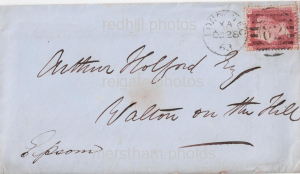 redhill photos
Arthur Holford Esq
reigate photos
Walton on the Hill
Epsom
merstham photos